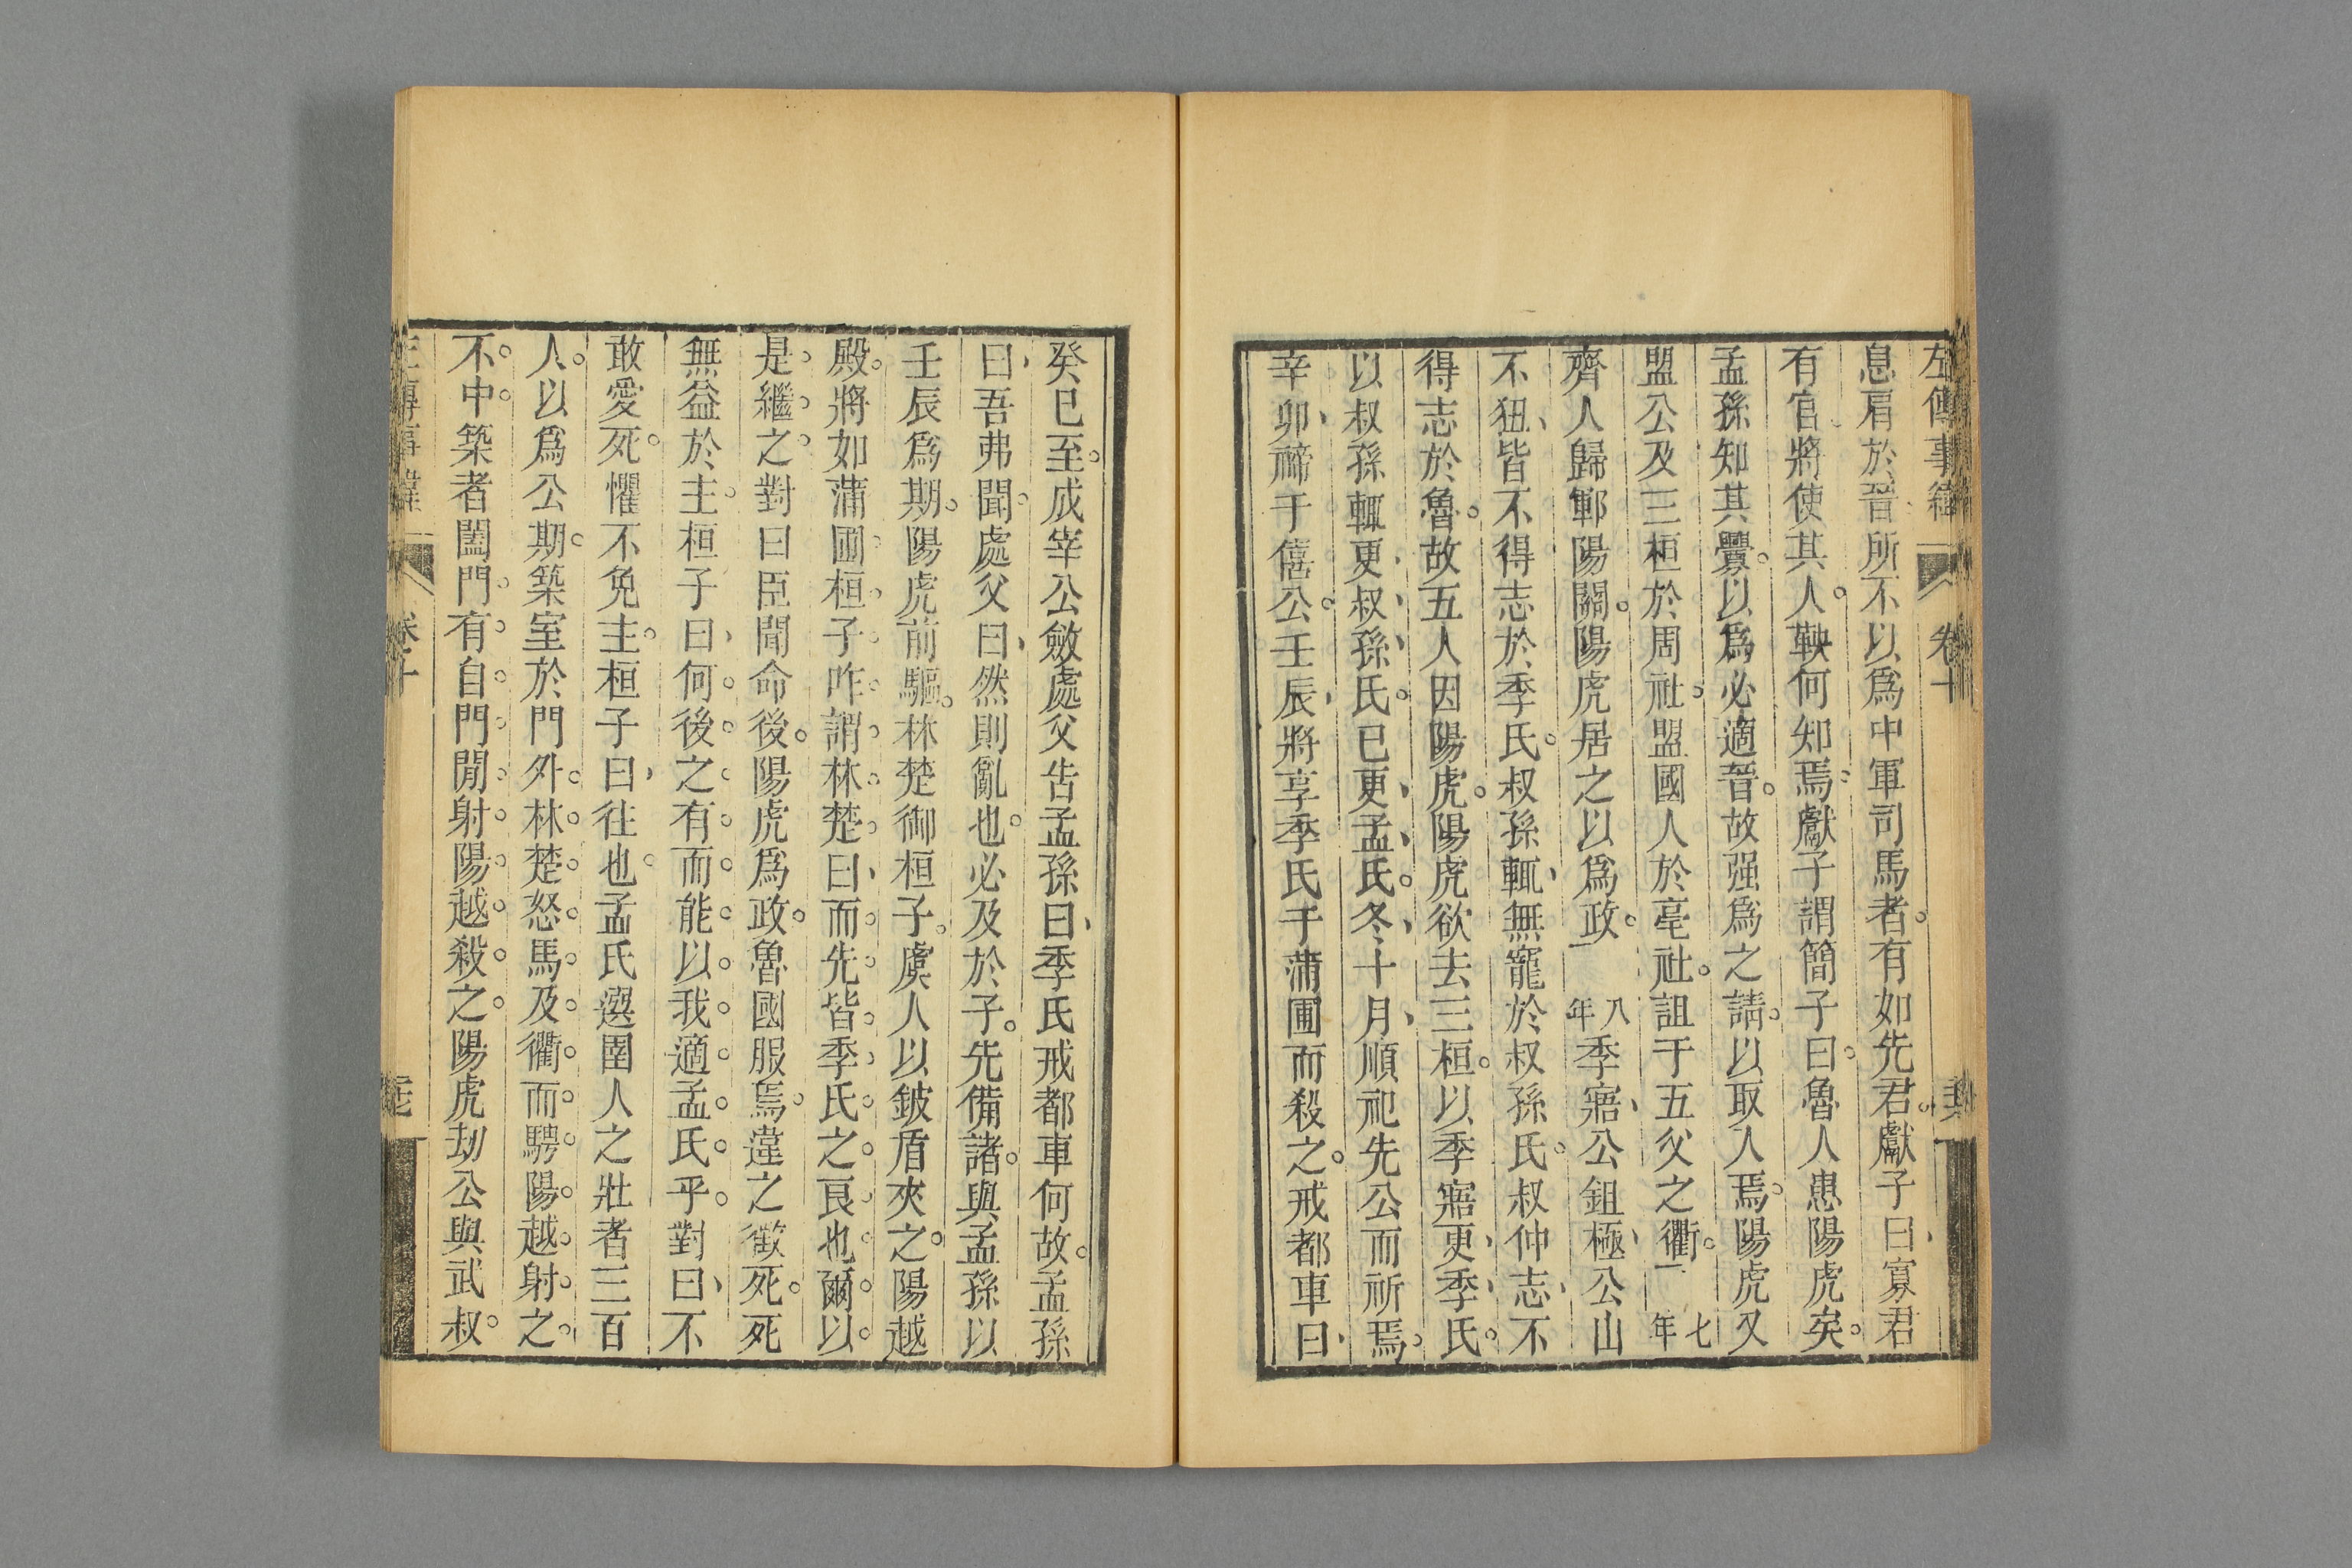 左傳事緯
卷十
息肩於晉所不以爲中軍司馬者有如先君獻子曰寡君
有官將使其人鞅何知焉獻子謂簡子曰魯人患陽虎矣
孟孫知其釁以爲必適晉故强爲之請以取入焉陽虎又
盟公及三桓於周社盟國人於亳社詛于五父之衢 七年
齊人歸鄆陽關陽虎居之以爲政 八年季寤公鉏極公山
不狃皆不得志於季氏叔孫輒無寵於叔孫氏叔仲志不
得志於魯故五人因陽虎陽虎欲去三桓以季寤更季氏
以叔孫輒更叔孫氏已更孟氏冬十月順祀先公而祈焉
辛卯禘于僖公壬辰將享季氏于蒲圃而殺之戒都車曰
癸巳至成宰公斂處父告孟孫曰季氏戒都車何故孟孫
曰吾弗聞處父曰然則亂也必及於子先備諸與孟孫以
壬辰爲期陽虎前驅林楚御桓子虞人以鈹盾夾之陽越
殿將如蒲圃桓子咋謂林楚曰而先皆季氏之良也爾以
是繼之對曰臣聞命後陽虎爲政魯國服焉違之徵死死
無益於主桓子曰何後之有而能以我適孟氏乎對曰不
敢愛死懼不免主桓子曰往也孟氏選圉人之壯者三百
人以爲公期築室於門外林楚怒馬及衢而騁陽越射之
不中築者闔門有自門閒射陽越殺之陽虎劫公與武叔
左傳事緯
卷十